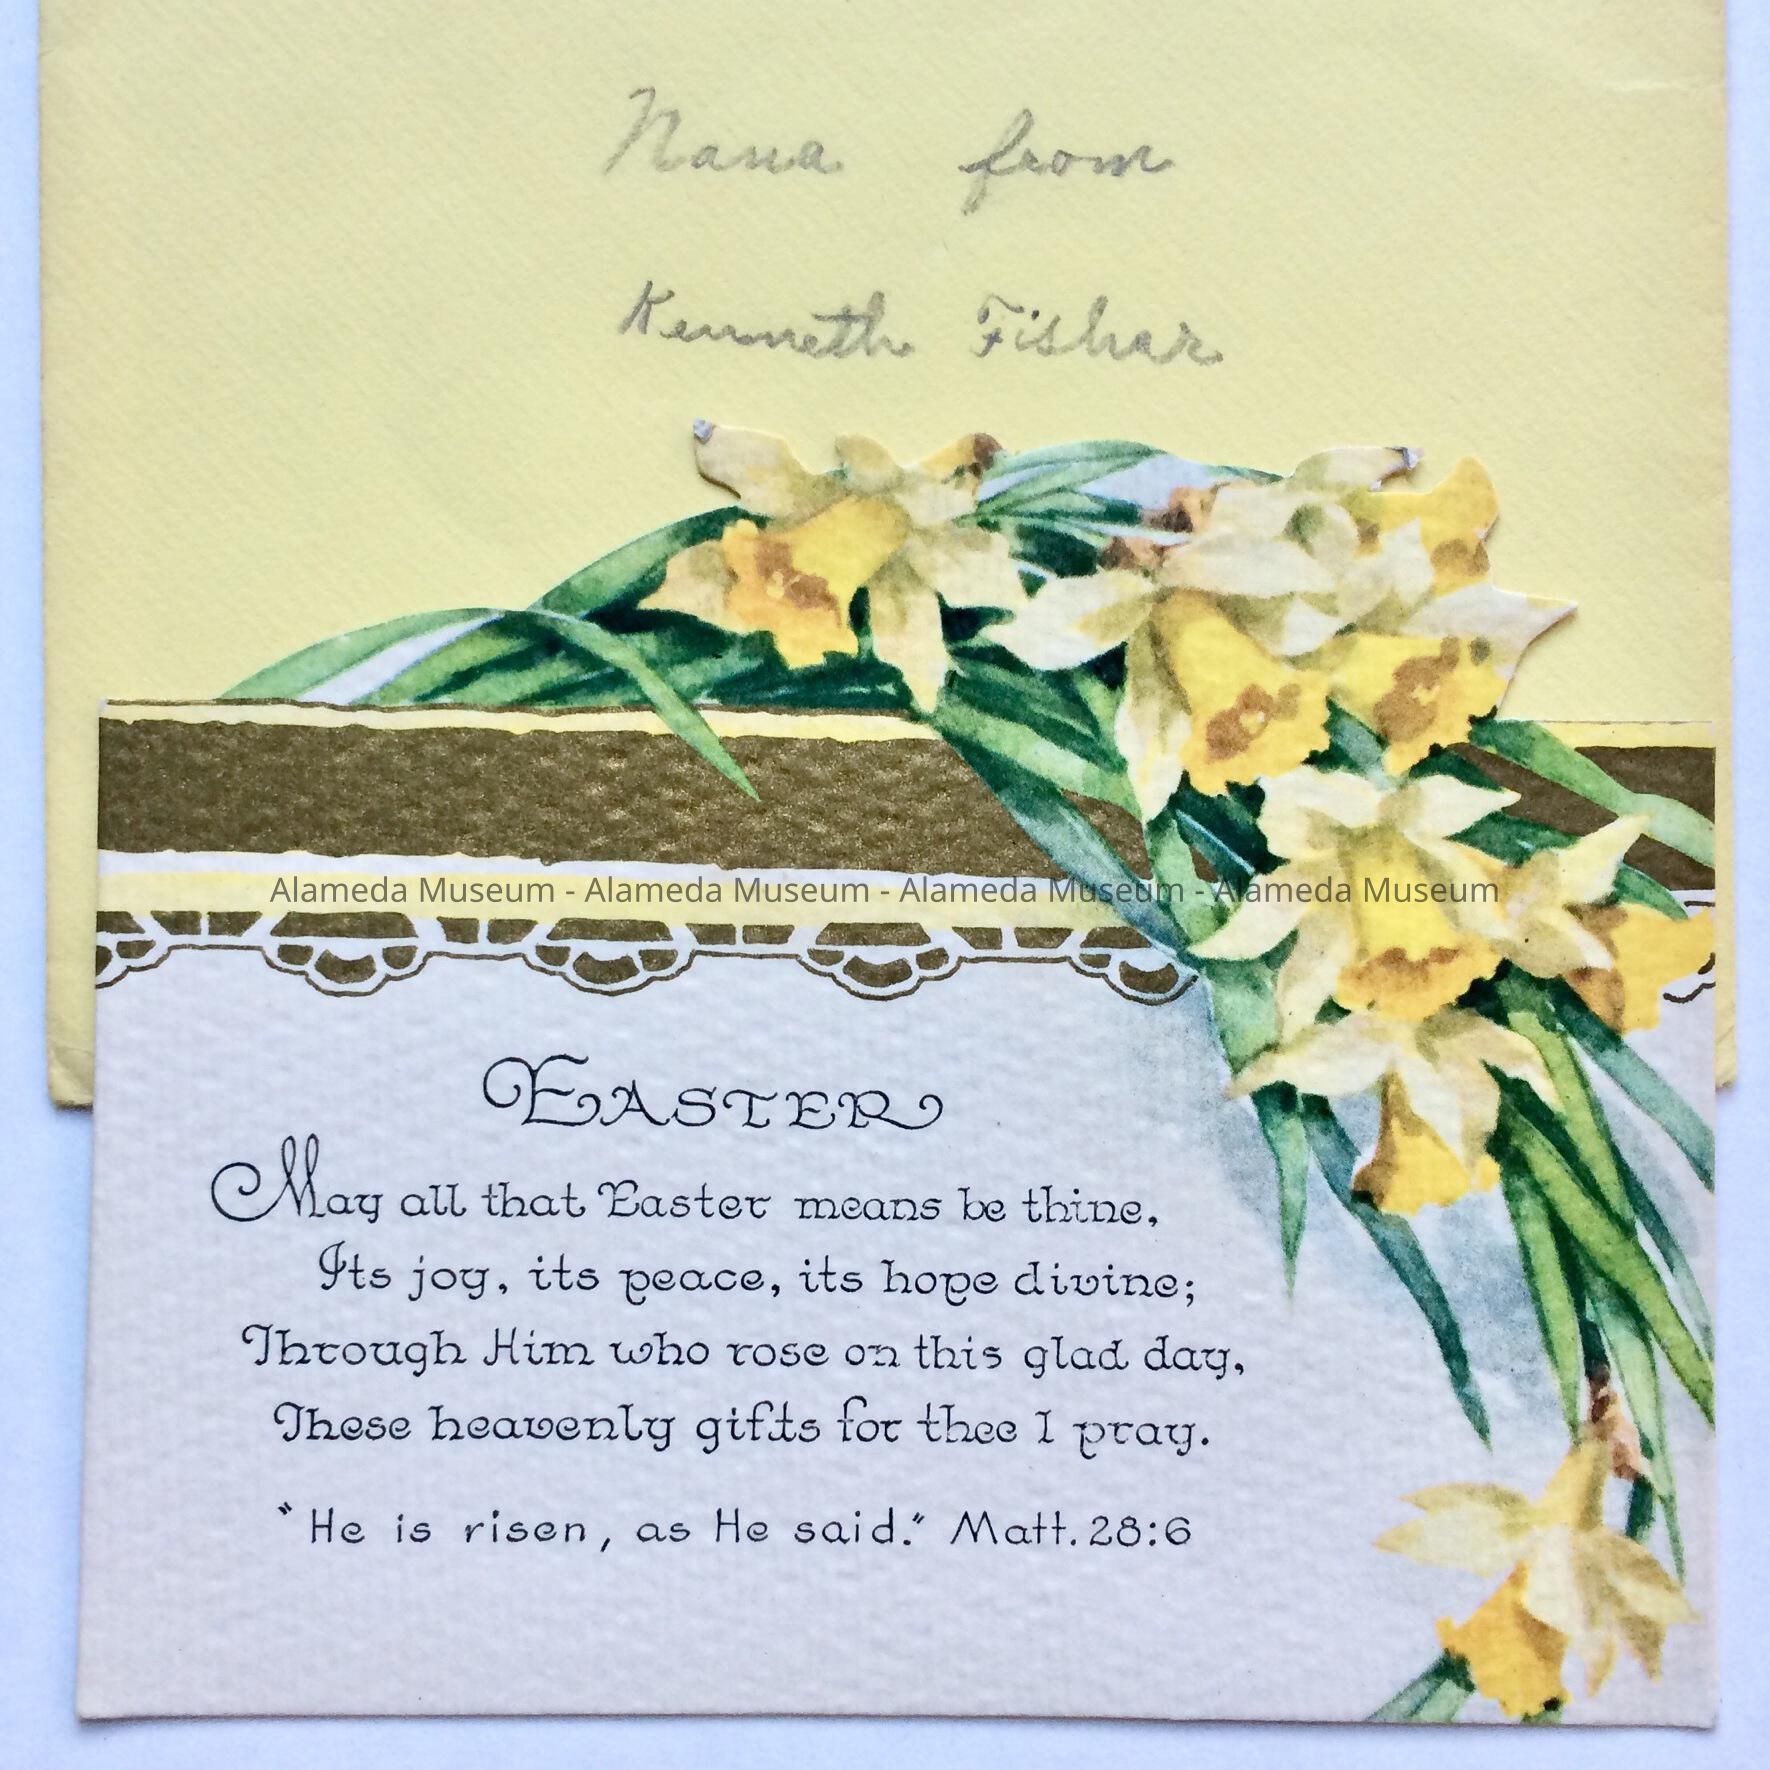 Nana from
Kenneth Fisher
Alameda Museum - Alameda Museum - Alameda Museum - Alameda Museum
EASTER
May all that Easter means be thine,
Its joy, its peace, its hope divine;
Through Him who rose on this glad day,
These heavenly gifts for thee I pray.
"He is risen, as He said." Matt. 28:6